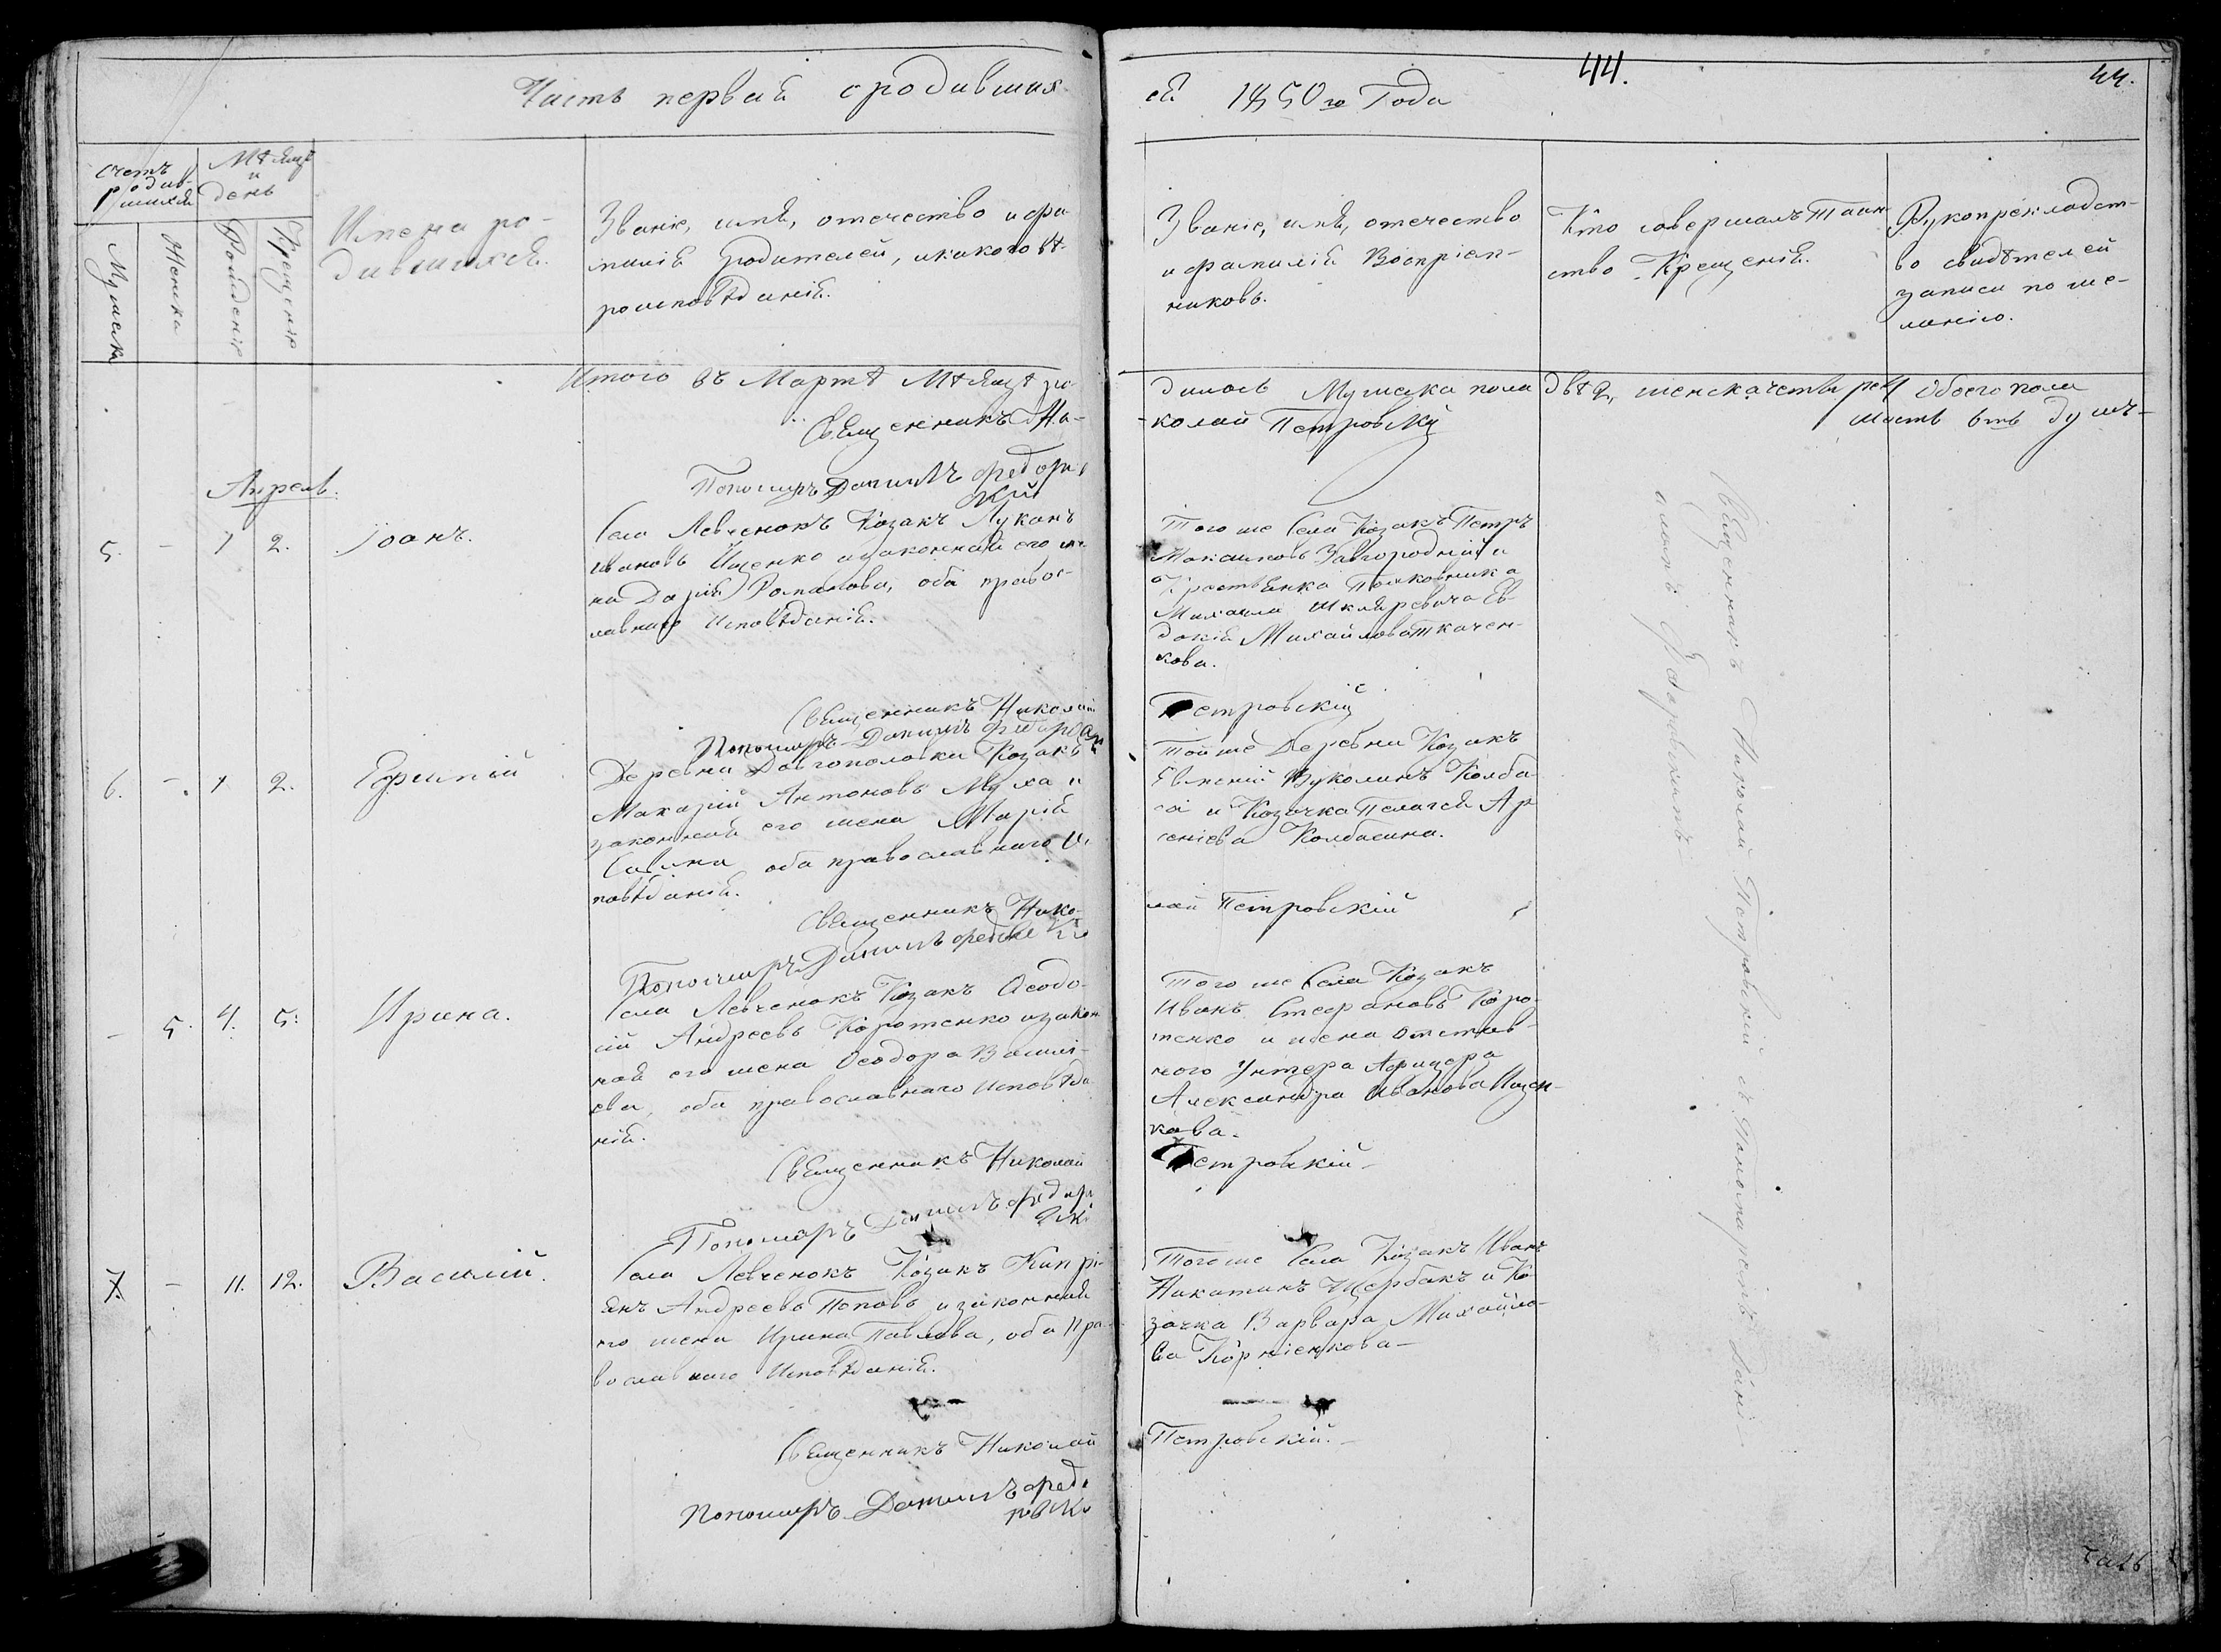 Часть первая о родивших
ся 1850го Года
44.
44.
Счетъ родив-
шихся
Мѣсяцъ
и
день
Мужеска
Женска
Рожденія
Крещенія
Имена ро-
дившихся.
Званіе, имя, отечество и фа-
милія Родителей, и какого вѣ-
роисповѣданія.
Званіе, имя, отечество
и фамилія Воспріем-
никовъ.
Кто совершалъ Таин-
ство Крещенія.
Рукоприкладст-
во свидѣтелей
записи по же-
ланію.
Итого въ Мартѣ Мѣсяцѣ ро-
дилось Мужска пола двѣ 2, женска четыре 4 Обоего пола
шесть 6ть душъ
Священникъ Ни-
колай Петровскій
Пономарь Даніилъ Федоро
вскій
Апрель.
5. - 1 2. Іоанъ.
Села Левченокъ Козакъ Луканъ
Ивановъ Ищенко и законная его же-
на Дарія Романова, оба правос-
лавнаго Исповѣданія.
Того же Села Козакъ Петръ
Максимовъ Завгородній и
Крестьянка Полковника
Михаила Шкляревича Ев-
докія Михайлова Ткачен-
кова.
Священникъ Николай
Петровскій
Пономарь Даніилъ Федоровскій
6. - 1 2. Ефимій
Деревни Довгополовки Козакъ
Макарій Антоновъ Муха и
законная его жена Марія
Саввина оба православнаго Ис
повѣданія.
Той же Деревни Козакъ
Евменій Вуколинъ Колба-
са и Козачка Пелагея Ар
сеніева Колбасина.
Священникъ Нико-
лай Петровскій
Пономарь Даніилъ Федоровскій
- 5. 4. 5. Ирина.
Села Левченокъ Козакъ Ѳеодо-
сій Андреевъ Коротенко и закон
ная его жена Ѳеодора Васили-
ева, оба православнаго Исповѣда
нія.
Того же Села Козакъ
Иванъ Стефановъ Коро-
тенко и жена отстав-
ного Унтера Афицера
Александра Иванова Ищен-
кова.
Священникъ Николай
Петровскій
Пономарь Даніилъ Федоро
вскі
7. - 11. 12. Василій.
Села Левченокъ Козакъ Кипрі-
янъ Андреевъ Поповъ и законная
его жена Ирина Павлова, оба Пра-
вославнаго Исповѣданія.
Того же Села Козакъ Иванъ
Никитинъ Щербакъ и Ко-
зачка Варвара Михайло-
ва Корніенкова
Священникъ Николай
Петровскій.
Пономарь Даніилъ Федо
ровскі
Священникъ Николай Петровскій съ Пономаремъ Дані
иломъ Федоровскимъ